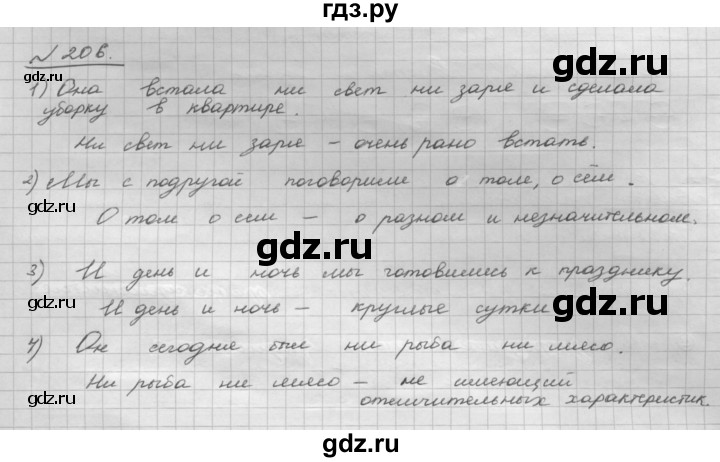 гдз.ру
№ 206.
gdz.ru gdz.ru gdz.ru
1) Она встала ни свет ни заря и сделала
уборку в квартире.
Ни свет ни заря – очень рано встать.
2) Мы с подругой поговорили о том, о сём.
gdz.ru gdz.ru
О том о сем – о разном и незначительном.
gdz.ru
3) И день и ночь мы готовились к празднику.
И день и ночь – круглые сутки
gdz.ru
4) Он сегодня был ни рыба ни мясо.
gdz.ru gdz.ru
Ни рыба ни мясо – не имеющий
отличительных характеристик.
gdz.ru